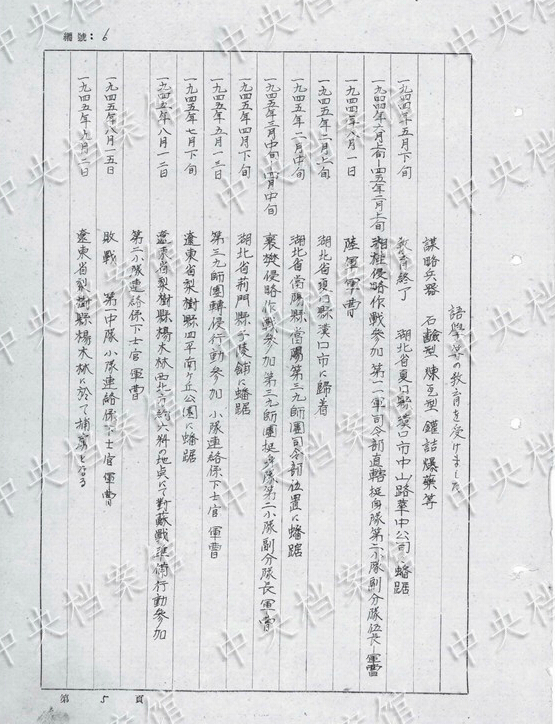 編號：6
語學等の教育を受けました
謀略兵器 石鹼型 煉瓦型 罐詰爆藥等
一九四四年五月下旬 教育終了 湖北省夏口縣漢口市中山路華中公司に蟠踞
一九四四年六月上旬－四五年二月上旬 湘桂侵略作戰參加 第一一軍司令部直轄挺身隊第二小隊副分隊伍長－軍曹
一九四四年八月一日 陸軍軍曹
一九四五年二月上旬 湖北省夏口縣漢口市に歸着
一九四五年二月中旬 湖北省當陽縣當陽第三九師團司令部位置に蟠踞
一九四五年三月中旬－四月中旬 襄樊侵略作戰參加 第三九師團挺身隊第二小隊副分隊長 軍曹
一九四五年四月下旬 湖北省荊門縣子陵鋪に蟠踞
一九四五年五月一三日 第三九師團轉侵行動參加 小隊連絡係下士官 軍曹
一九四五年七月下旬 遼東省梨樹縣四平南ヶ丘公園に蟠踞
一九四五年八月一三日 遼東省梨樹縣楊木林西北方約六粁の地点にて對蘇戰準備行動參加
第二小隊連絡係下士官 軍曹
一九四五年八月一五日 敗戰 第一中隊小隊連絡係下士官 軍曹
一九四五年九月二日 遼東省梨樹縣楊木林に於て捕虜となる
第 5 頁
中央档案馆